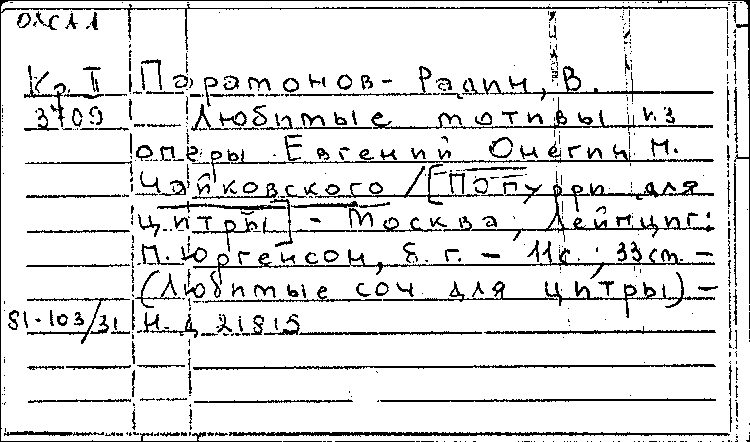 ОХСА1
Кр. II Парамонов-Радин, В.
3709 Любимые мотивы из
оперы Евгений Онегин П.
Чайковского / [Попурри для
цитры] - Москва; Лейпциг:
П. Юргенсон, б. г. - 11с.; 33см. -
(Любимые соч для цитры) -
81-103/31 Н. д 21815